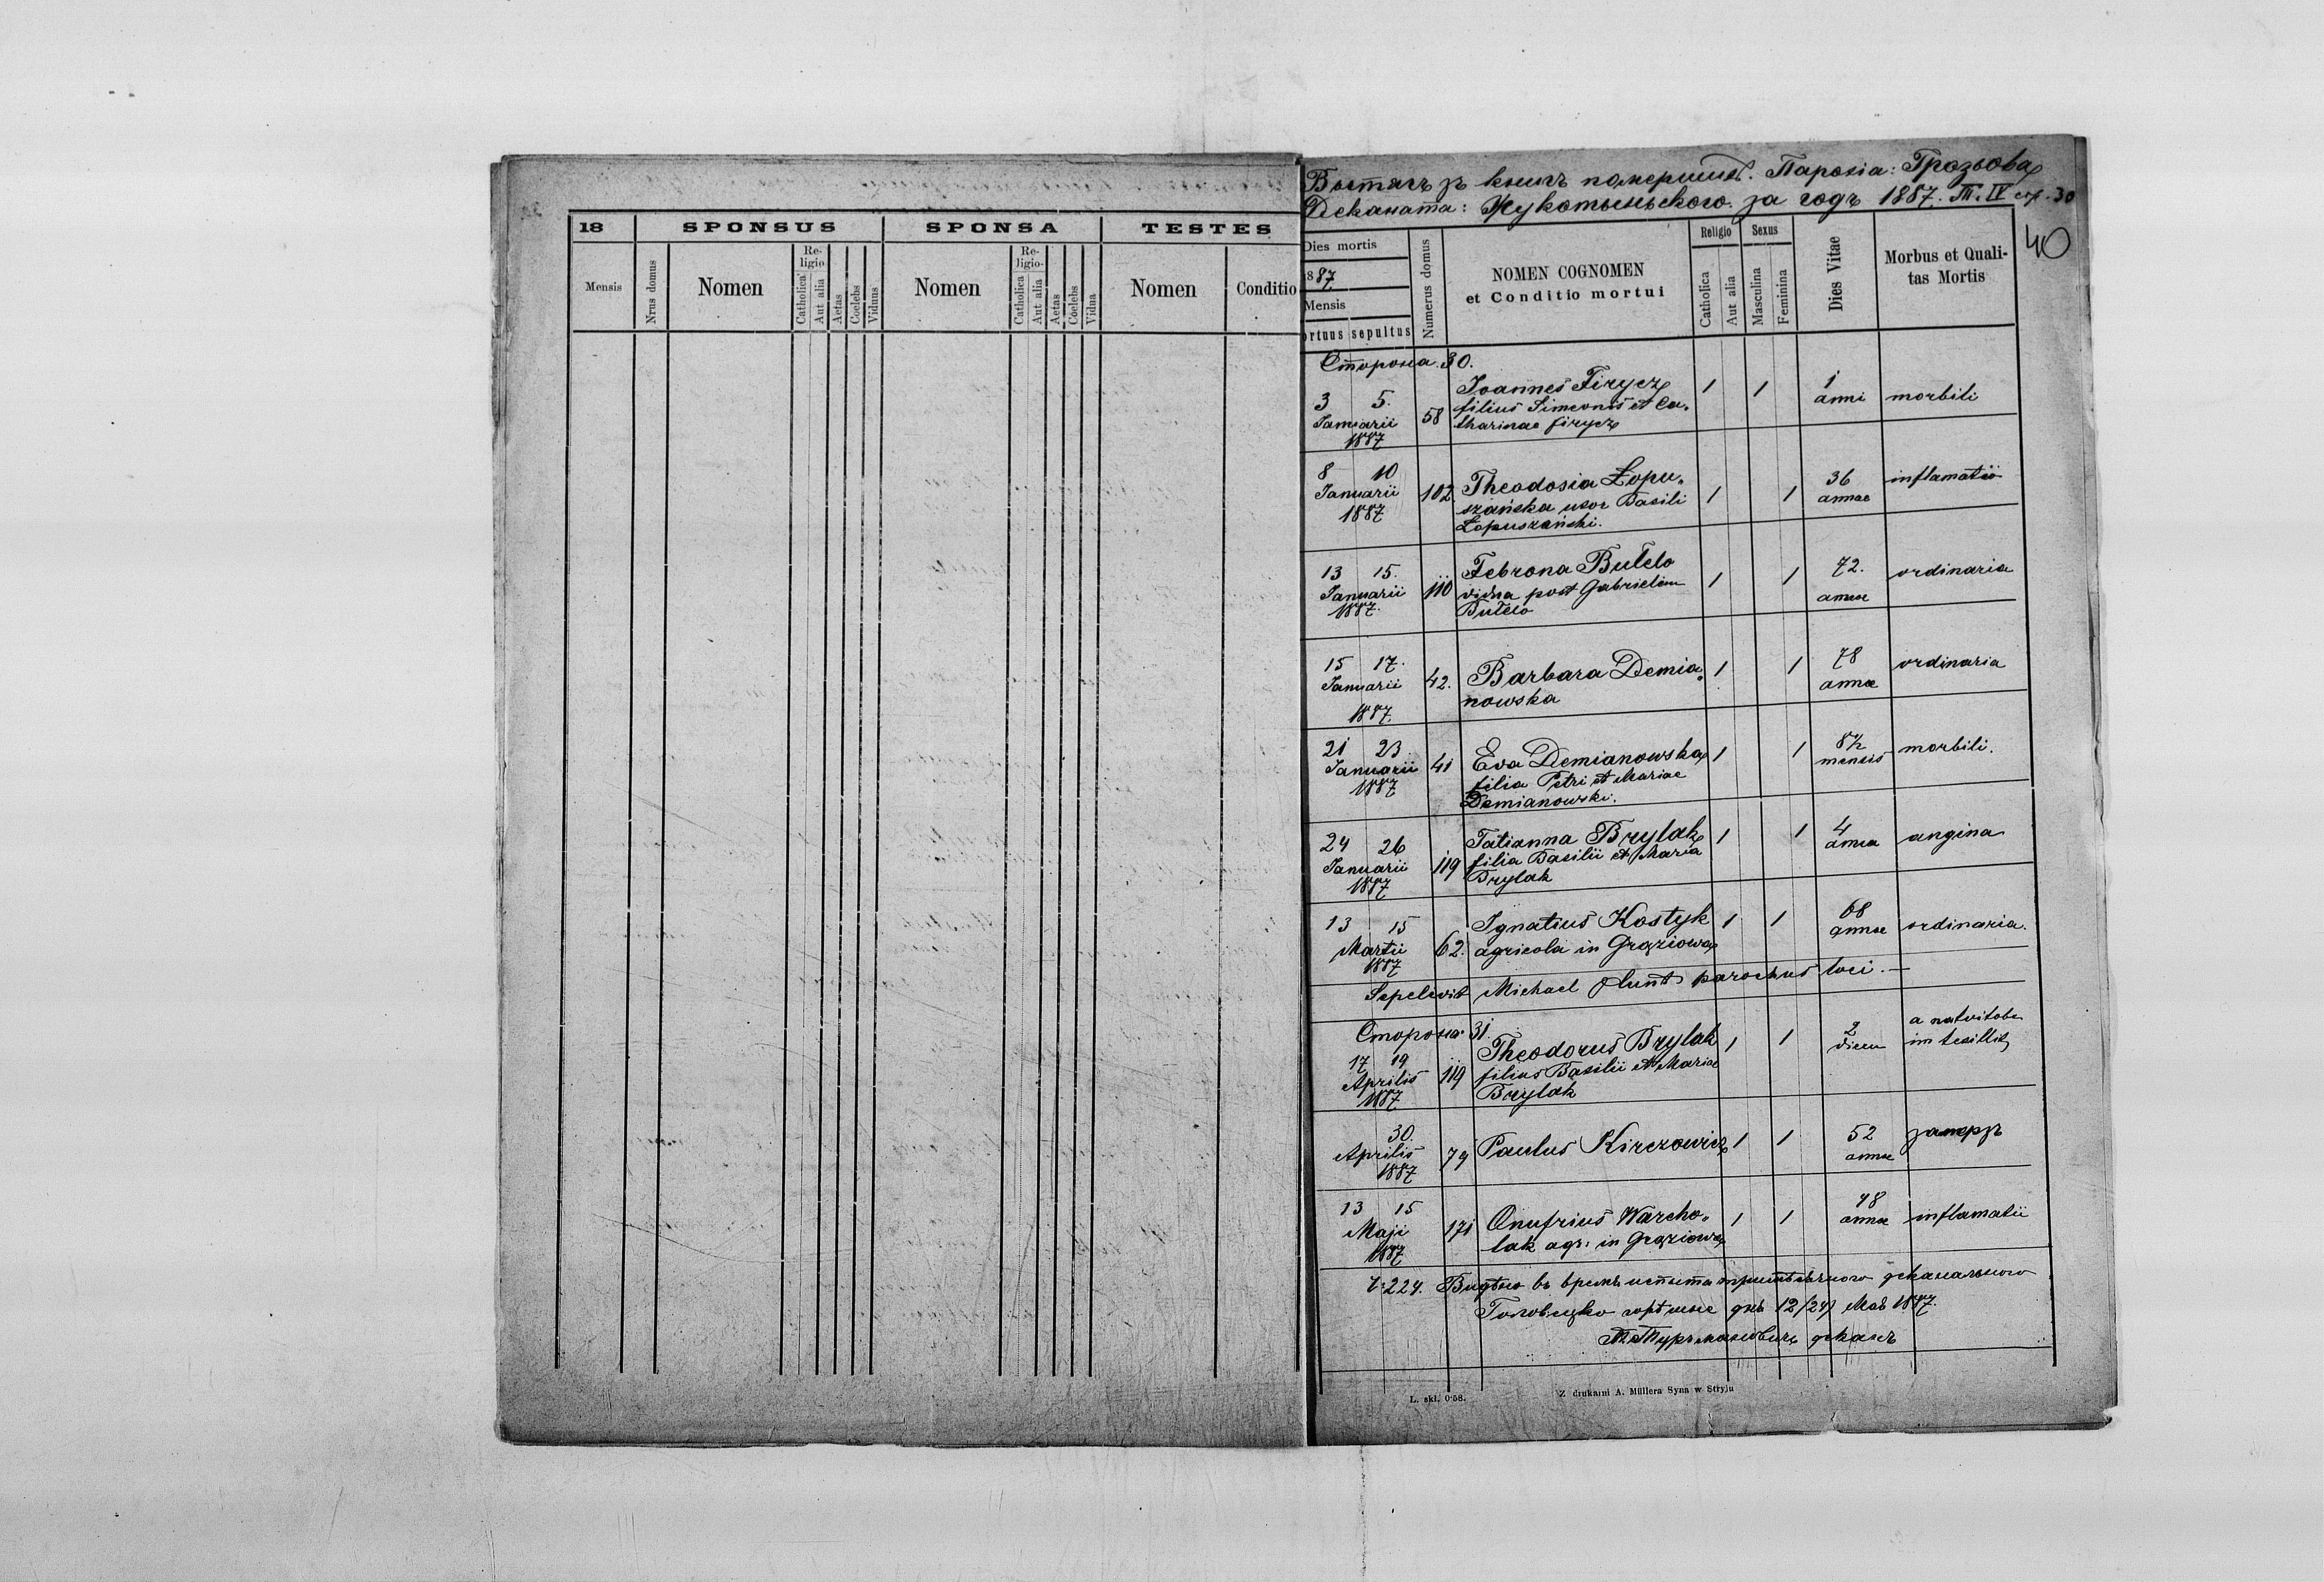 18
SPONSUS
SPONSA
TESTES
Mensis
Nrus domus
Nomen
Re-
ligio
Catholica
Aut alia
Aetas
Coelebs
Viduus
Nomen
Re-
ligio
Catholica
Aut alia
Aetas
Coelebs
Vidua
Nomen
Conditio
Вытягъ зъ книгъ Парохіа: Грозьова
Деканата: за годъ 1887. Т. IV стр. 30
40
Dies mortis
1887
Mensis
ortuus sepultus
Numerus domus
NOMEN COGNOMEN
et Conditio mortui
Religio
Catholica
Aut alia
Sexus
Masculina
Feminina
Dies Vitae
Morbus et Quali-
tas Mortis
Сторона 30.
3 5. Januarii 1887
58
Joannes Firycz
filius Simeonis et Ca-
tharinae Firycz
1 1
1 anni
morbili
8 10 Januarii 1887
102.
Theodosia Łopu-
szańska uxor Basili
Łopuszański.
1 1
36 annae
inflamatio
13 15. Januarii 1887.
110
Febrona Buteło
vidua post Gabrielem
Buteło
1 1
72. annae
ordinaria
15 17. Januarii 1887.
42.
Barbara Demia-
nowska
1 1
78 annae
ordinaria
21 23. Januarii 1887
41
Eva Demianowska
filia Petri et Mariae
Demianowski.
1 1
8½ mensis
morbili.
24 26 Januarii 1887
119
Tatianna Brylak
filia Basilii et Maria
Brylak
1 1
4
angina
13 15 Martii 1887
62.
Ignatius Kostyk
agricola in Groziowa
1 1
68 annae
ordinaria.
Sepelivit Michael parochus loci.—
Сторона 31.
17 19 Aprilis 1887
119
Theodorus Brylak
filius Basilii et Mariae
Brylak
1 1
2
a
30. Aprilis 1887
79
Paulus Kirczowicz
1 1
52 annae
замерзъ
13 15 Maji 1887
171
Onufrius Warcho-
lak agr. in Groziowa
1 1
48 annae
inflamatii
Ч: 224. Видѣно въ деканального
дня 12/24 Мая 1887.
деканъ
L. skł. 0·58.
Z drukarni A. Müllera Syna w Stryju